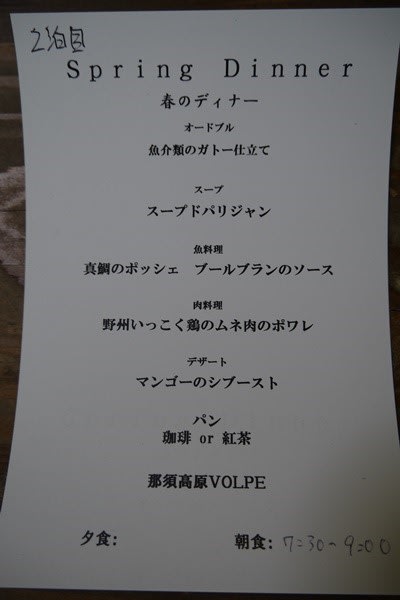 2泊目
Spring Dinner
春のディナー
オードブル
魚介類のガトー仕立て
スープ
スープドパリジャン
魚料理
真鯛のポッシェ ブールブランのソース
肉料理
野州いっこく鶏のムネ肉のポワレ
デザート
マンゴーのシブースト
パン
珈琲 or 紅茶
那須高原VOLPE
夕食: 朝食: 7:30〜9:00